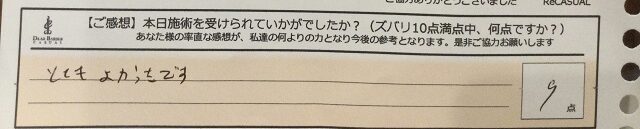 ご協力ありがとうございました ReCASUAL
DEAR BARBER
CASUAL
【ご感想】本日施術を受けられていかがでしたか？（ズバリ10点満点中、何点ですか？）
あなた様の率直な感想が、私達の何よりの力となり今後の参考となります。是非ご協力お願いします
とても よかったです
9 点